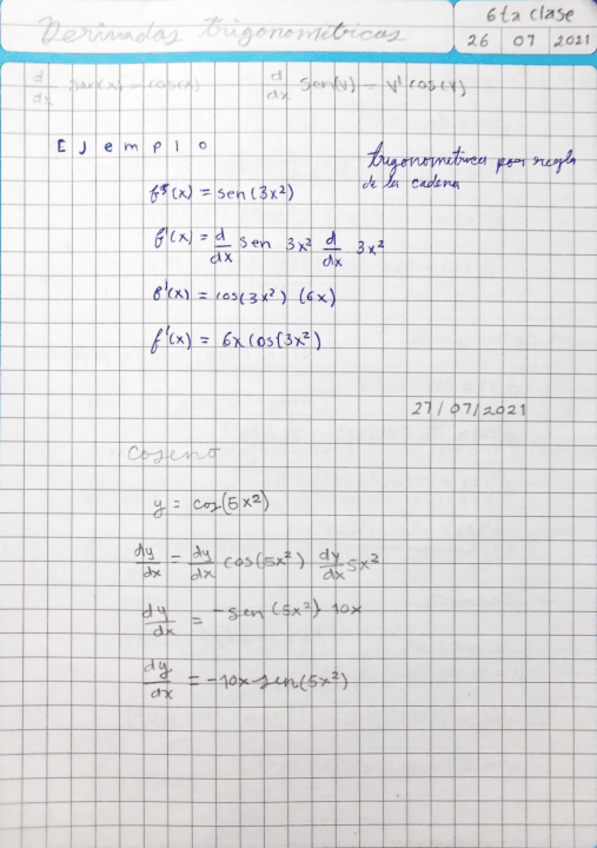 Derivadas trigonometricas
6ta clase
26 07 2021
d/dx sen(x) = cos(x) d/dx sen(v) = v' cos(v)
Ejemplo
trigonometrica por regla
de la cadena
f(x) = sen(3x²)
f'(x) = d/dx sen 3x² d/dx 3x²
f'(x) = cos(3x²) (6x)
f'(x) = 6x cos(3x²)
27/07/2021
coseno
y = cos(5x²)
dy/dx = dy/dx cos(5x²) dy/dx 5x²
dy/dx = -sen(5x²) 10x
dy/dx = -10x sen(5x²)